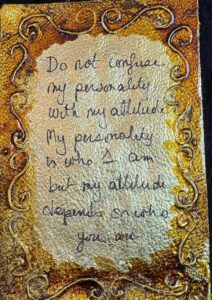 Do not confuse
my personality
with my attitude
My personality
is who I am
but my attitude
depends on who
you are